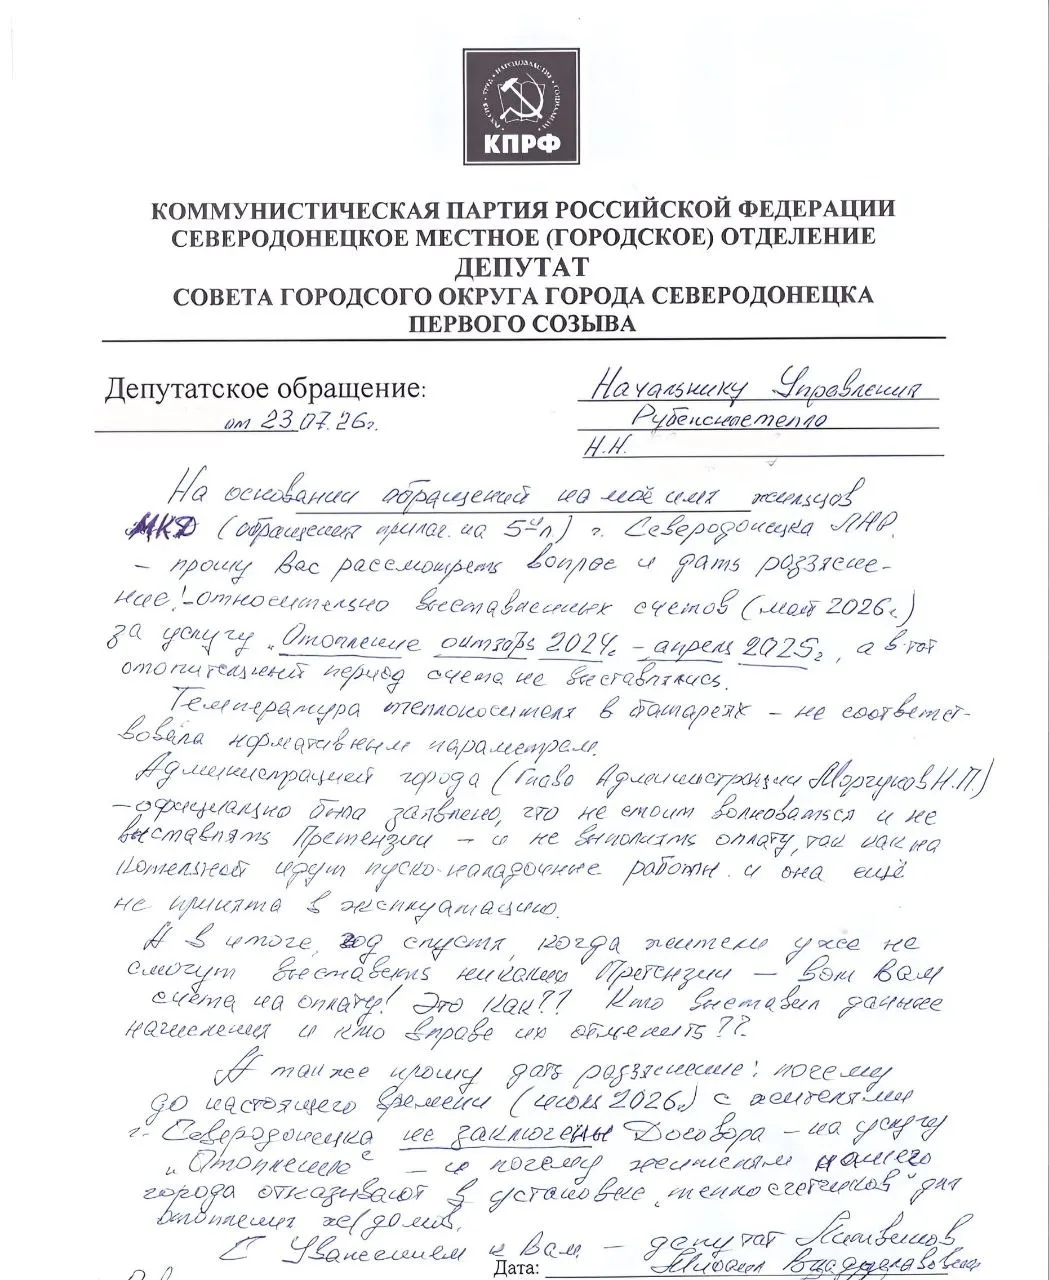 РОССИЯ · ТРУД · НАРОДОВЛАСТИЕ · СОЦИАЛИЗМ
КПРФ
КОММУНИСТИЧЕСКАЯ ПАРТИЯ РОССИЙСКОЙ ФЕДЕРАЦИИ
СЕВЕРОДОНЕЦКОЕ МЕСТНОЕ (ГОРОДСКОЕ) ОТДЕЛЕНИЕ
ДЕПУТАТ
СОВЕТА ГОРОДСОГО ОКРУГА ГОРОДА СЕВЕРОДОНЕЦКА
ПЕРВОГО СОЗЫВА
Депутатское обращение:
от 23.07.26г.
Начальнику Управления
Рубежноетепло
Н.Н.
На основании обращений на моё имя жильцов
МКД (обращения прилаг. на 5и л) г. Северодонецка ЛНР.
– прошу Вас рассмотреть вопрос и дать раззясне-
ние! – относительно выставленных счетов (май 2026г.)
за услугу „Отопление октябрь 2024г. – апрель 2025г., а в тот
отопительный период счета не выставлялись.
Температура теплоносителя в батареях – не соответст-
вовала нормативным параметрам.
Администрацией города (Глава Администрации Моргунов Н.П.)
– официально было заявлено, что не стоит волноваться и не
выставлять Претензии – и не выполнять оплату, так как на
Котельной идут пуско-наладочные работы и она ещё
не принята в эксплуатацию.
А в итоге, год спустя, когда жители уже не
смогут выставить никаких Претензий – вот Вам
счета на оплату! Это как?? Кто выставил данные
начисления и кто вправе их отменить??
А также прошу дать раззяснение: почему
до настоящего времени (июль 2026г.) с жителями
г. Северодонецка не заключены Договора – на услугу
„Отопление" – и почему жителям нашего
города отказывают в установке „теплосчетчиков" для
отопления ж/домов.
С Уважением к Вам – депутат Литвинов
Михаил Владиславович
Дата: